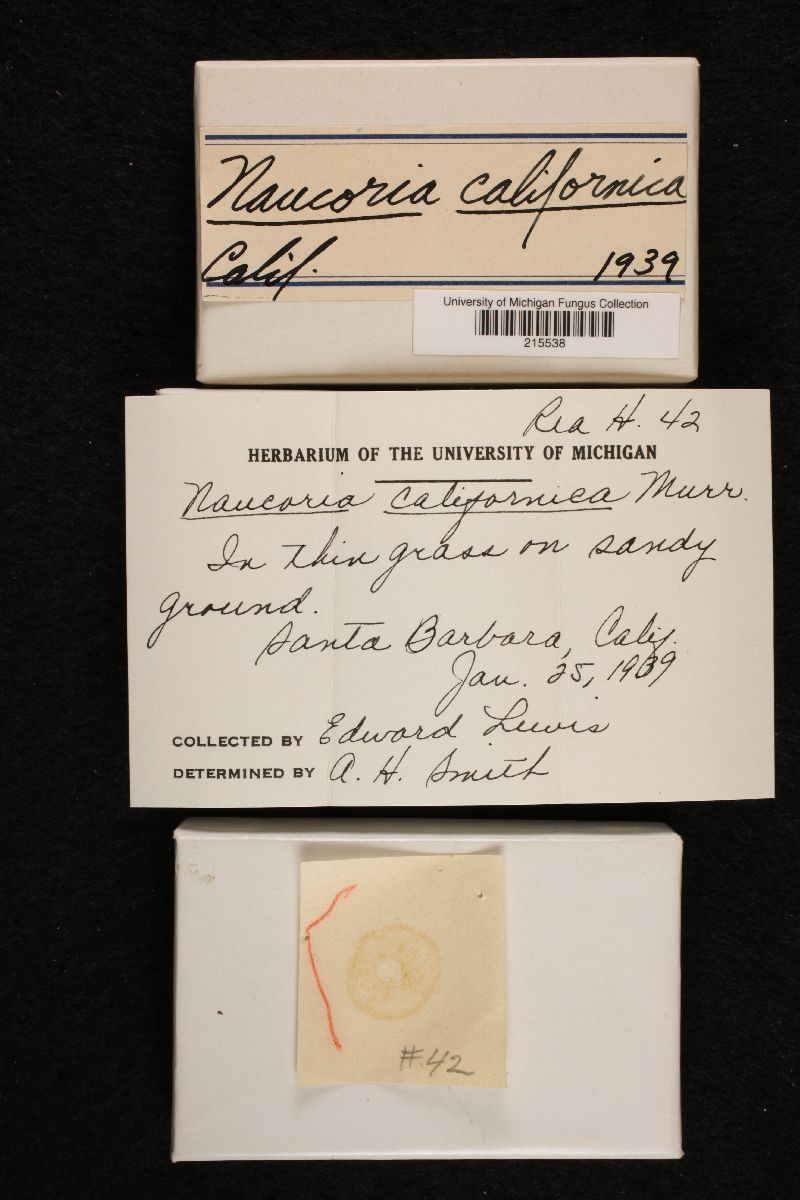 Naucoria californica
Calif. 1939
University of Michigan Fungus Collection
215538
Rea H. 42
HERBARIUM OF THE UNIVERSITY OF MICHIGAN
Naucoria californica Murr.
In thin grass on sandy
ground.
Santa Barbara, Calif.
Jan. 25, 1939
COLLECTED BY Edward Lewis
DETERMINED BY A. H. Smith
#42